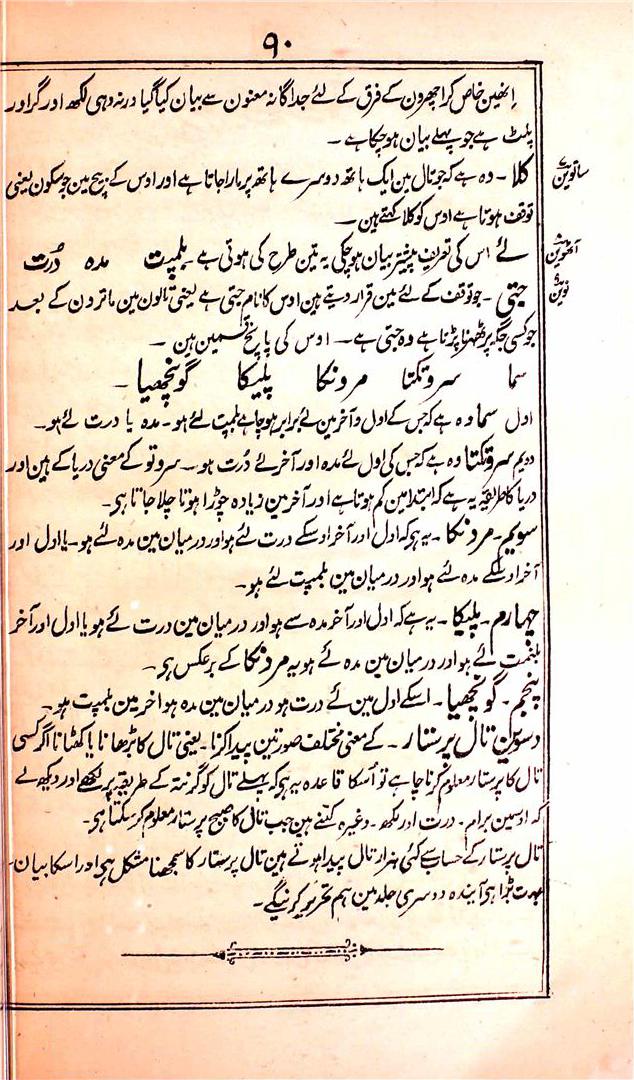 ۹۰
اِنھین خاص کر اچھرون کے فرق کے لئے جداگانہ معنون سے بیان کیا گیا ورنہ وہی لکھ اور گر اور
پلٹ ہے جو پہلے بیان ہو چکا ہے ۔
ساتوین
کلا ۔ وہ ہے کہ جو تال مین ایک ہاتھ دوسرے ہاتھ پر مارا جاتا ہے اور اوس کے بیچ مین جو سکون یعنی
توقف ہوتا ہے اوس کو کلا کہتے ہین ۔
آٹھوین
لئے اس کی تعریف پیشتر بیان ہو چکی یہ تین طرح کی ہوتی ہے بلمپت مدہ دُرت
نوین
جتی ۔ جو توقف کے لئے مین قرار دیتے ہین اوس کا نام جتی ہے یعنی تالون مین ماترون کے بعد
جو کسی جگہ پر ٹھہنا پڑتا ہے وہ جتی ہے ۔ اوس کی پانچ قسمین ہین ۔
سما سروتکتا مردنکا پلیکا گونچھیا ۔
اول سما وہ ہے کہ جس کے اول و آخر مین لئے برابر ہو چاہے بلمپت لئے ہو ۔ مدہ یا درت لئے ہو ۔
دویم سروتکتا وہ ہے کہ جس کی اول لئے مدہ اور آخر لئے دُرت ہو ۔ سروتو کے معنی دریا کے ہین اور
دریا کا طریقہ یہ ہے کہ ابتدا مین کم ہوتا ہے اور آخر مین زیادہ چوڑا ہوتا چلا جاتا ہی ۔
سویم ۔ مردنکا ۔ یہ ہی کہ اول اور آخر اوسکے درت لئے ہو اور درمیان مین مدہ لئے ہو ۔ یا اول اور
آخر اوسکے مدہ لئے ہو اور درمیان مین بلمپت لئے ہو ۔
چہارم ۔ پلیکا ۔ یہ ہے کہ اول اور آخر مدہ سے ہو اور درمیان مین درت لئے ہو یا اول اور آخر
لئے ہو اور درمیان مین مدہ لئے ہو یہ مردنکا کے برعکس ہی ۔
پنجم ۔ گونچھیا ۔ اسکے اول مین لئے درت ہو درمیان مین مدہ ہو آخر مین بلمپت ہو ۔
دسوین تال پرستار ۔ کے معنی مختلف صورتین پیدا کرنا ۔ یعنی تال کا بڑھانا یا گھٹانا اگر کسی
تال کا پرستار معلوم کرنا چاہے تو اُسکا قاعدہ یہ ہی کہ پہلے تال کو گرنتہ کے طریقہ پر لکھے اور دیکھ لے
کہ اوسمین برام ۔ درت اور لکھ ۔ وغیرہ کتنے ہین جب تال کا صحیح پرستار معلوم کر سکتا ہی ۔
تال پرستار کے حساب سے کئی ہزار تال پیدا ہوتے ہین تال پرستار کا سمجھنا مشکل ہی اور اسکا بیان
بہت بڑا ہی آیندہ دوسری جلد مین ہم تحریر کرینگے ۔